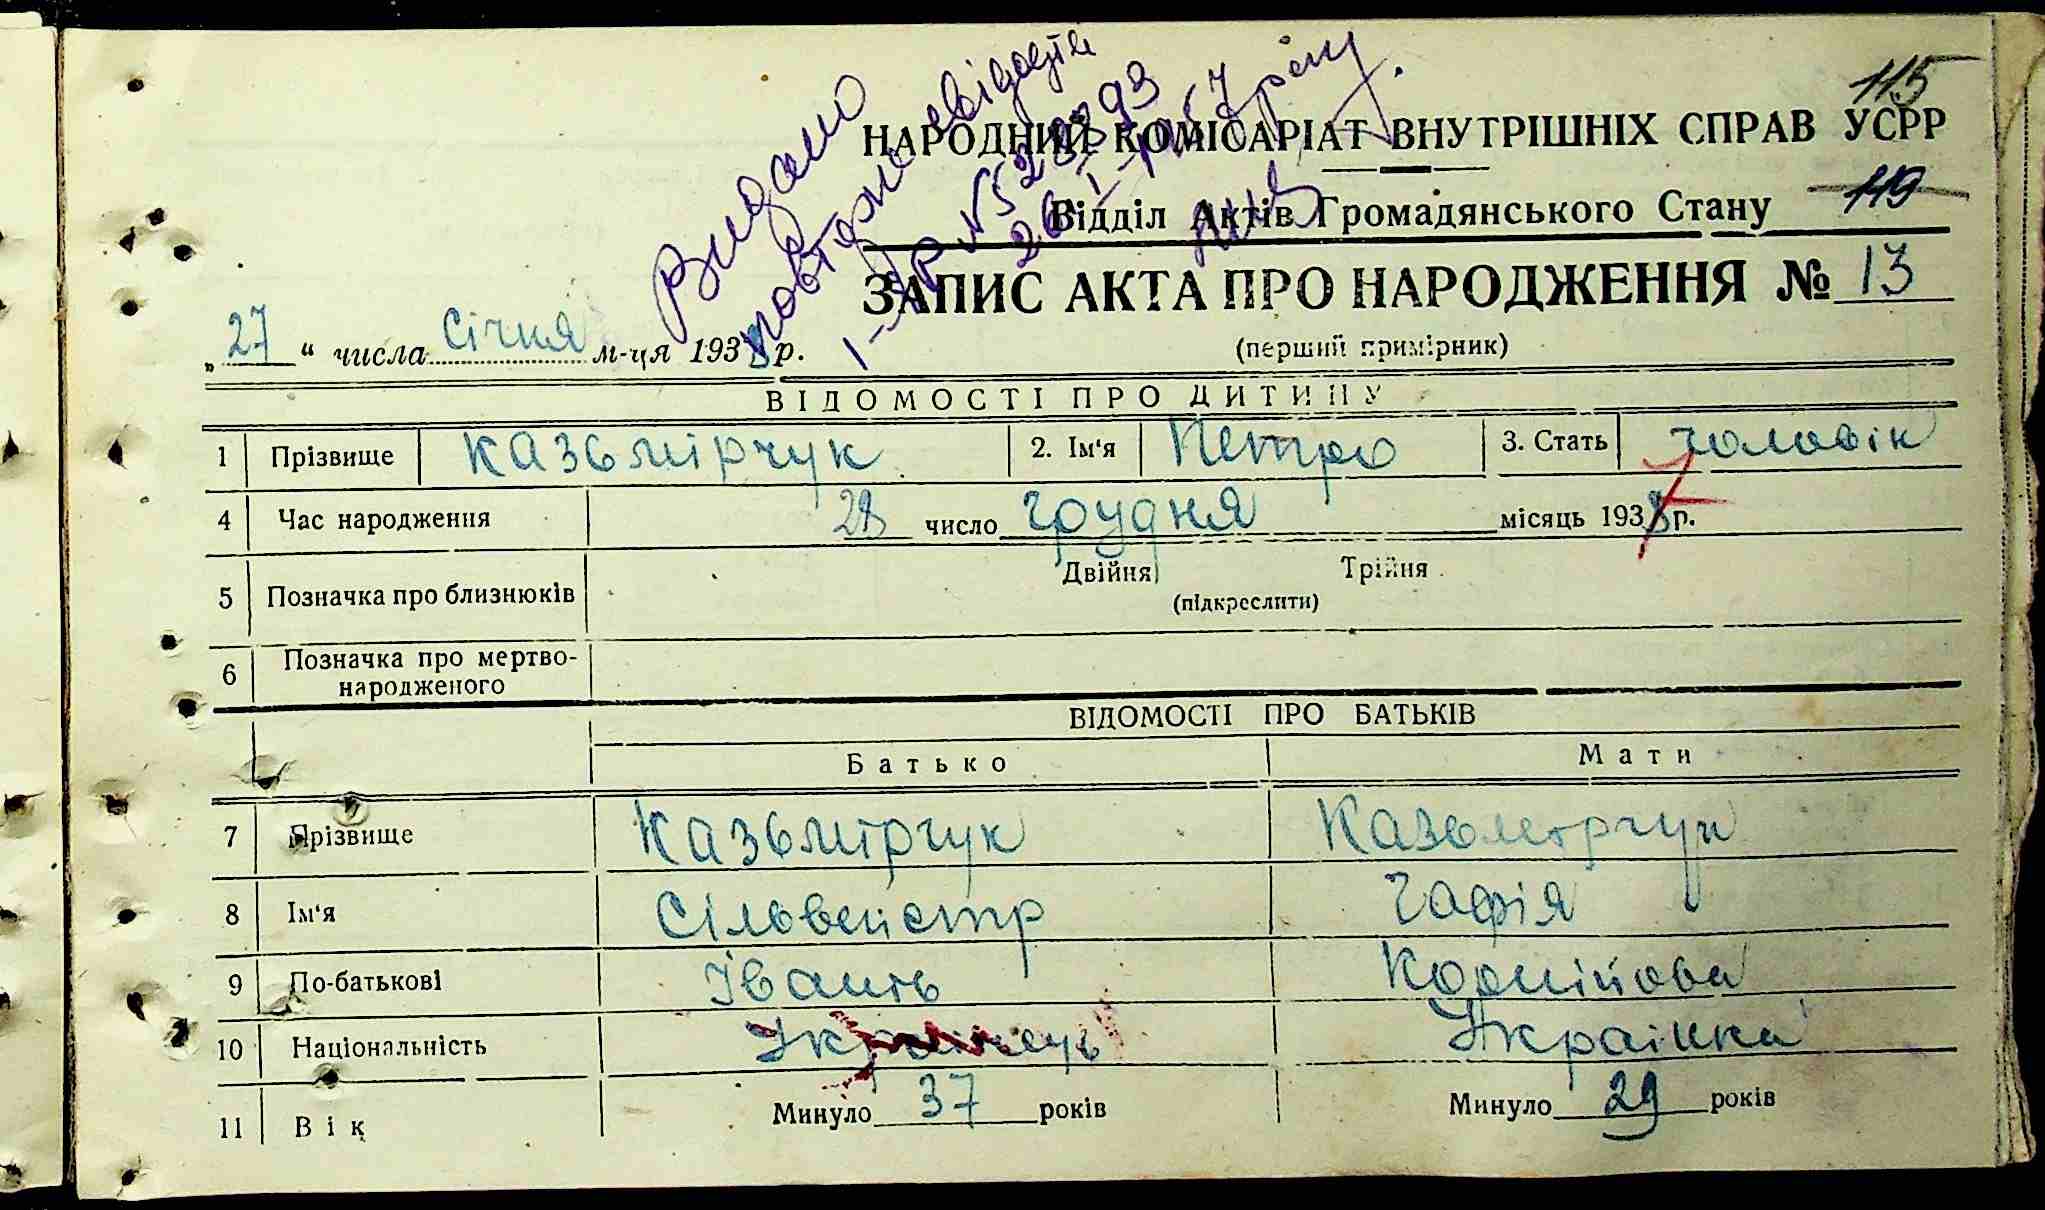 Видано
повторне свідоцтв
115
НАРОДНИЙ КОМІСАРІАТ ВНУТРІШНІХ СПРАВ УСРР
Відділ Актів Громадянського Стану 119
ЗАПИС АКТА ПРО НАРОДЖЕННЯ № 13
„ 27 “ числа Січня м-ця 1938 р.
(перший примірник)
ВІДОМОСТІ ПРО ДИТИНУ
1 Прізвище Казьмірчук 2. Ім'я Петро 3. Стать чоловік
4 Час народження 28 число грудня місяць 1937 р.
5 Позначка про близнюків Двійня Трійня
(підкреслити)
6 Позначка про мертво-
народженого
ВІДОМОСТІ ПРО БАТЬКІВ
Батько Мати
7 Прізвище Казьмірчук Казьмірчук
8 Ім'я Сільвейстр Гафія
9 По-батькові Івановь Корнійова
10 Національність Українець Українка
11 Вік Минуло 37 років Минуло 29 років